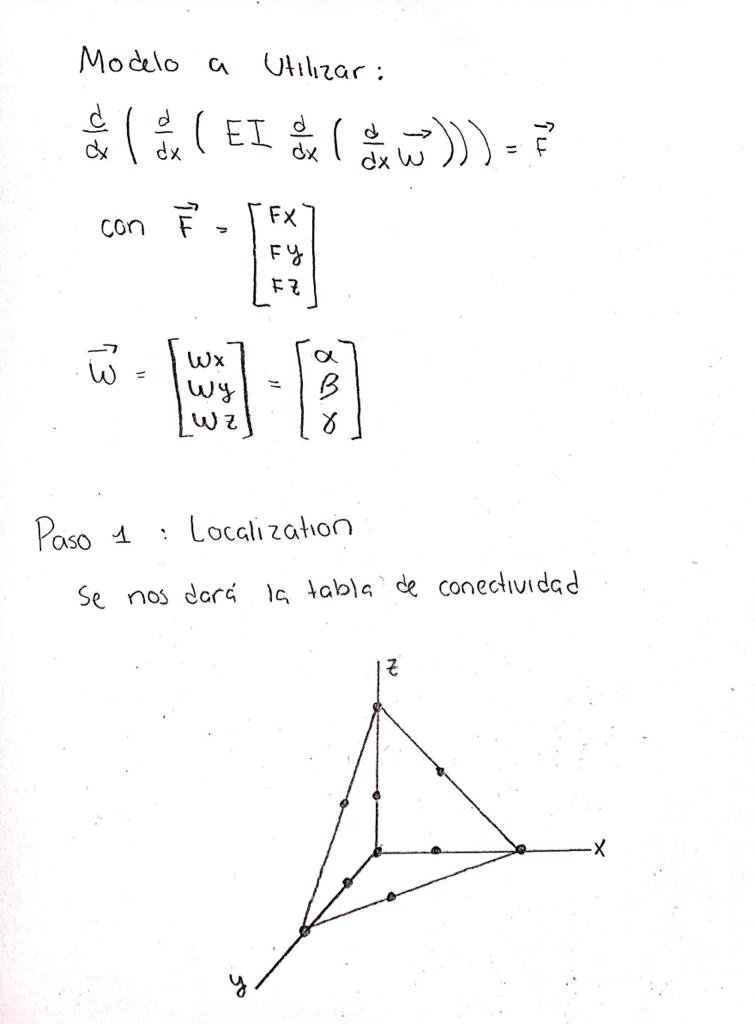 Modelo a Utilizar:
d/dx ( d/dx ( EI d/dx ( d/dx W⃗ ))) = F⃗
con F⃗ = [Fx Fy Fz]
W⃗ = [Wx Wy Wz] = [α β γ]
Paso 1 : Localization
Se nos dará la tabla de conectividad
z
x
y